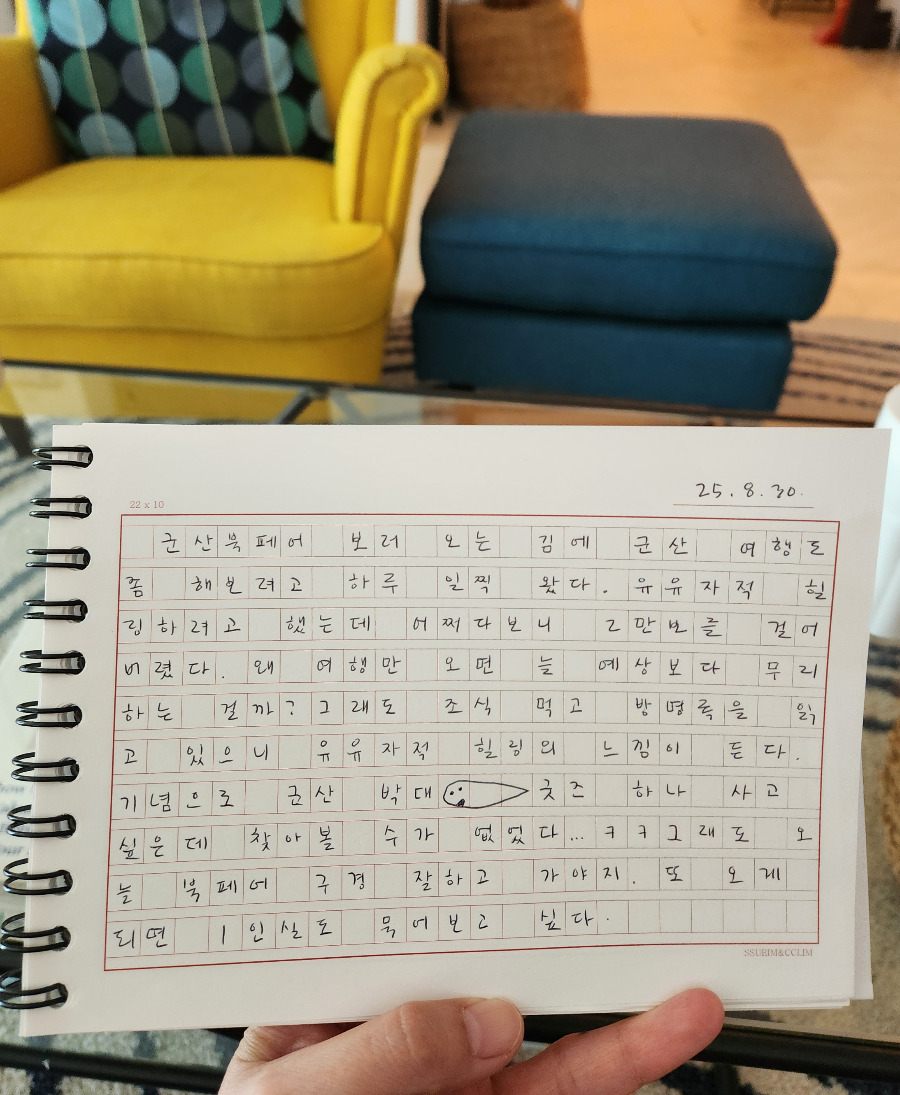 25.8.30.
22 x 10
군산북페어 보러 오는 김에 군산 여행도
좀 해보려고 하루 일찍 왔다. 유유자적 힐
링하려고 했는데 어쩌다보니 2만보를 걸어
버렸다. 왜 여행만 오면 늘 예상보다 무리
하는 걸까? 그래도 조식 먹고 방명록을 읽
고 있으니 유유자적 힐링의 느낌이 든다.
기념으로 군산 박대 굿즈 하나 사고
싶은데 찾아볼 수가 없었다... ㅋㅋ그래도 오
늘 북페어 구경 잘하고 가야지. 또 오게
되면 1인실도 묵어보고 싶다.
SSUEIM&CCLIM